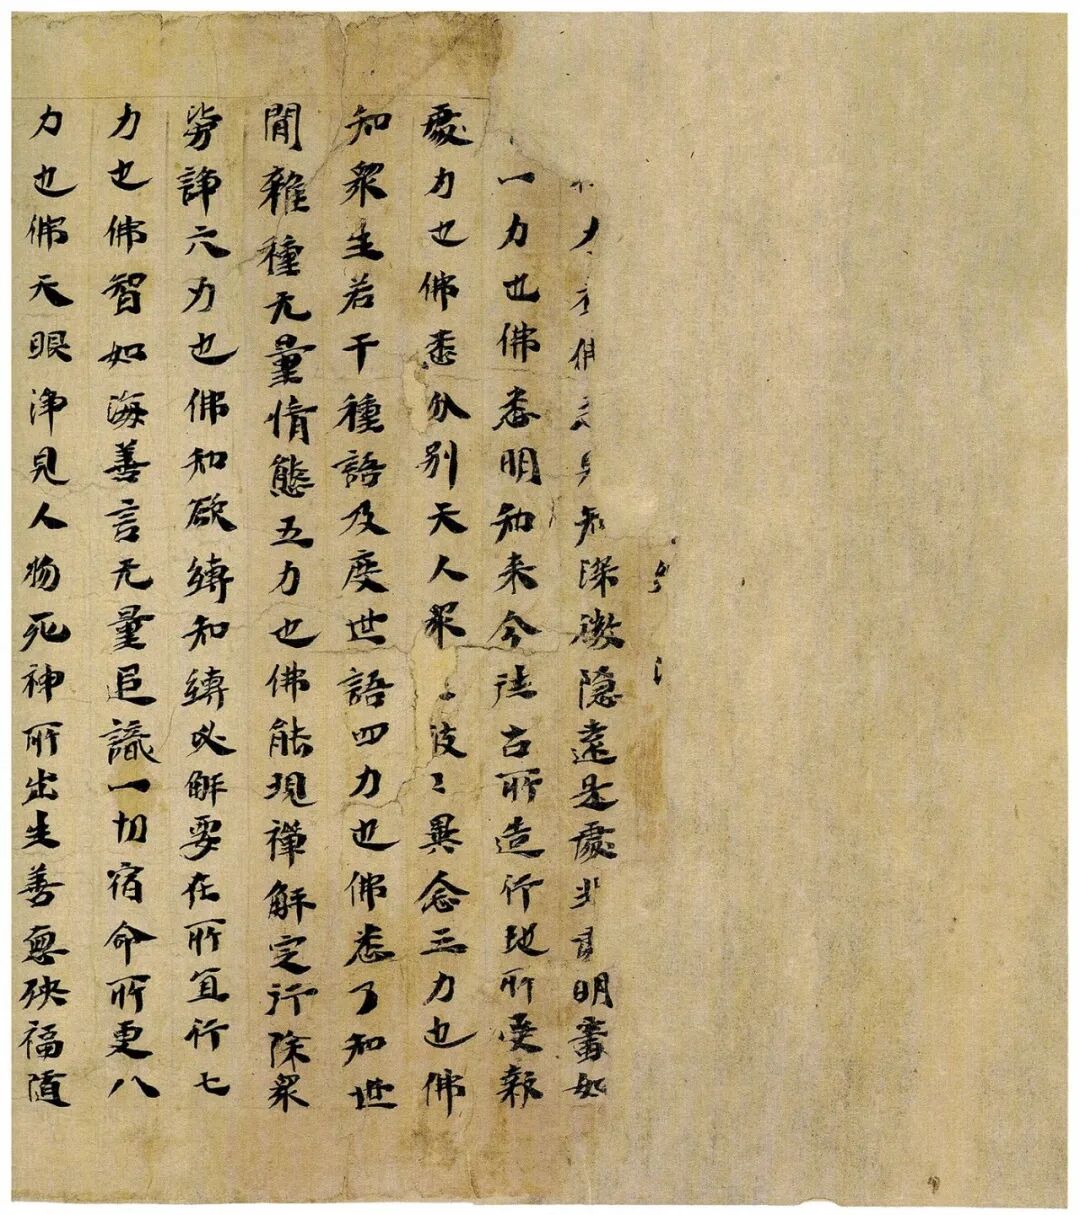 力者佛悉見知深微隱遠是處非處明審如
一力也佛悉明知来今往古所造行地所受報
處力也佛悉分別天人衆彼〻異念三力也佛
知衆生若干種語及度世語四力也佛悉了知世
間雜種无量情態五力也佛能現禪解定行除衆
勞諍六力也佛知欲縛知縛必解要在所宜行七
力也佛智如海善言无量追識一切宿命所更八
力也佛天眼浄見人物死神所出生善惡殃福随